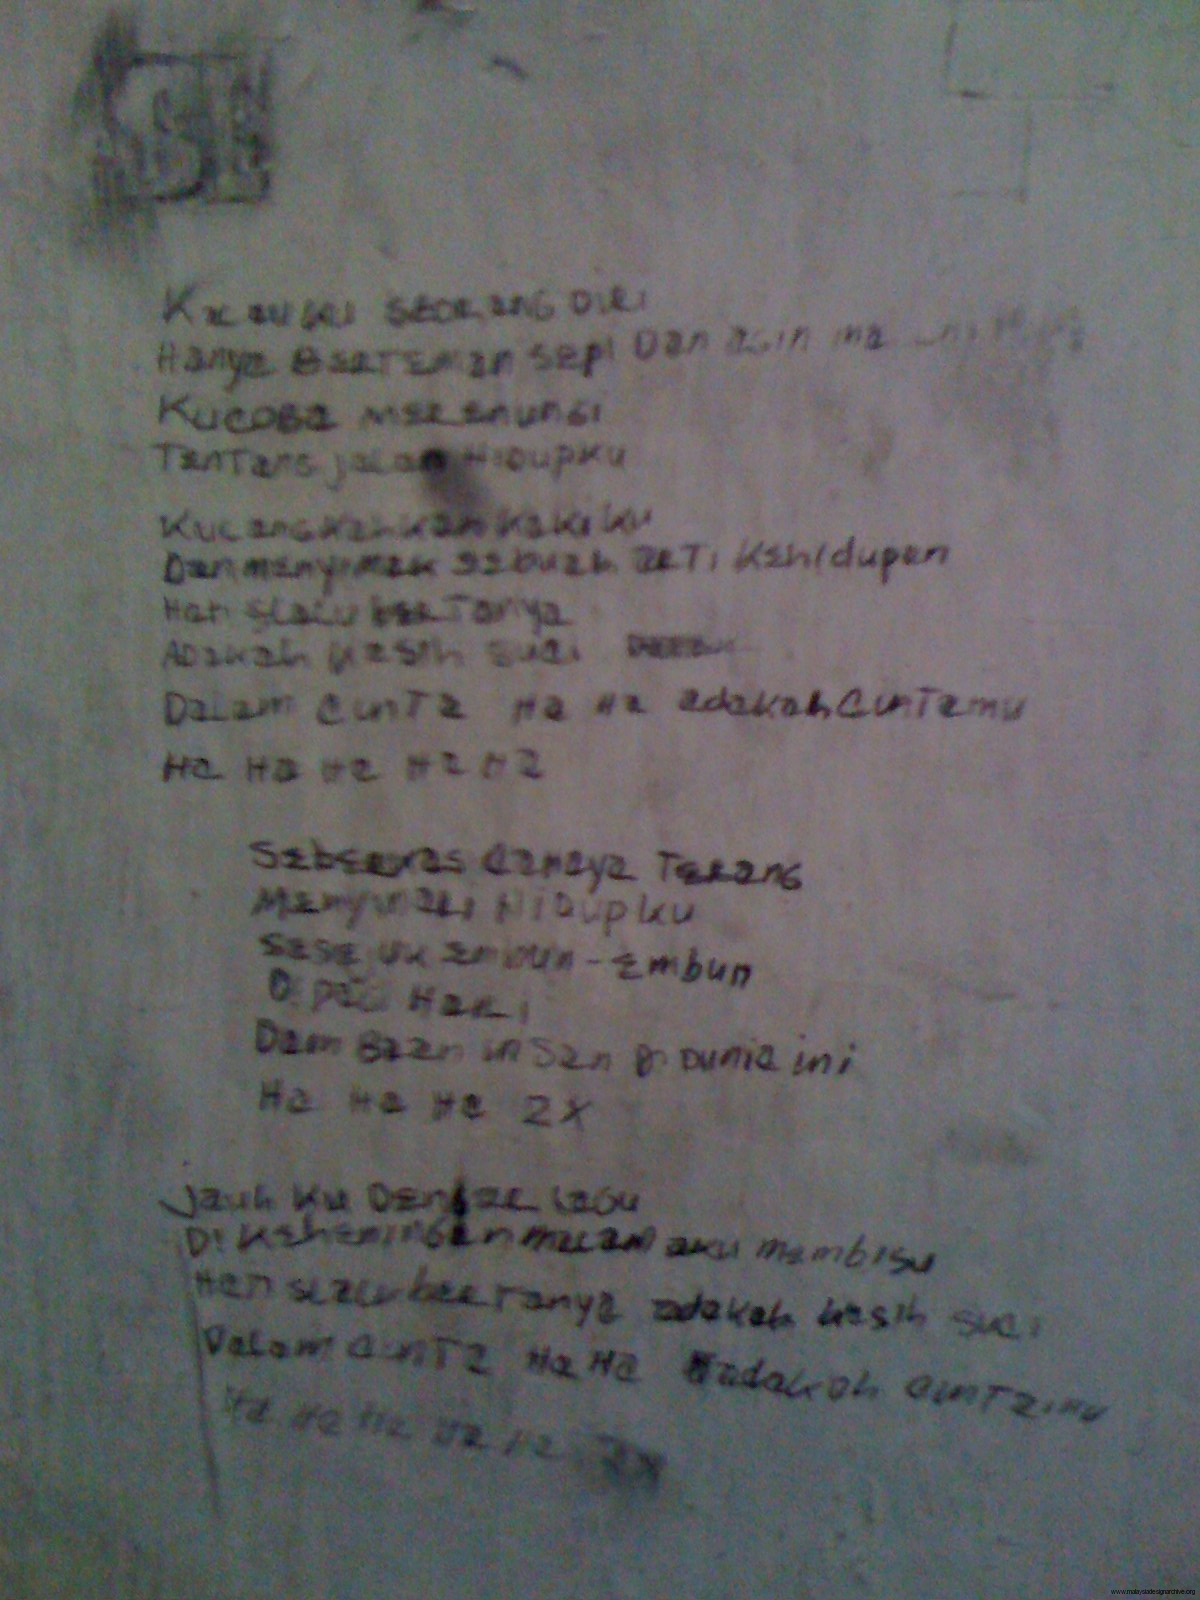 SE
Kalau ku seorang diri
Hanya berteman sepi Dan asin ma
Kucoba merenungi
Tentang jalan Hidupku
Kulangkahkan kakiku
Dan menyimak sebuah arti Kehidupan
Hati slalu bertanya
Adakah kasih suci
Dalam cinta Ha Ha adakah cintamu
Ha Ha Ha Ha Ha
Seberkas cahaya Terang
Menyinari Hidupku
Sesejuk embun-embun
Di pagi Hari
Dambaan insan di Dunia ini
Ha Ha Ha 2X
Jauh ku Dengar lagu
Di Keheningan malam aku membisu
Hati slalu bertanya adakah kasih suci
Dalam cinta Ha Ha adakah cintamu
Ha Ha Ha Ha Ha 2X
www.malaysiadesignarchive.org